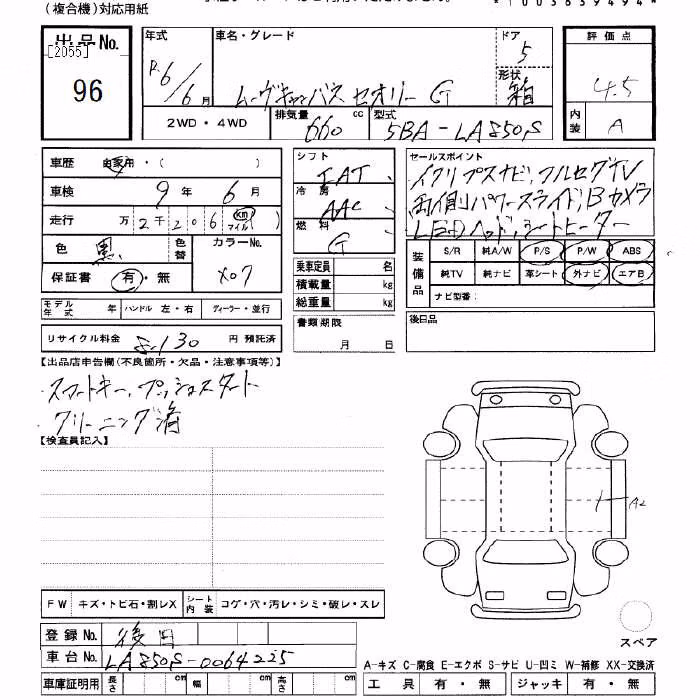 (複合機)対応用紙
*1003639494*
出品No. [2055] 96
年式 R.6/6月
車名・グレード ムーヴキャンバス セオリー G
ドア 5
形状 箱
評価点 4.5
内装 A
2WD・4WD 排気量 660 cc 型式 5BA-LA850S
車歴 自家用・( )
車検 9年 6月
走行 万 2千 206 km マイル
色 黒 色替 カラーNo. X07
保証書 有・無
モデル年式 年 ハンドル 左・右 ディーラー・並行
リサイクル料金 8,130 円 預託済
シフト IAT
冷房 AAC
燃料 G
乗車定員 名
積載量 kg
総重量 kg
書類期限
月 日
セールスポイント
イクリプスナビ,フルセグTV
両側パワースライド,Bカメラ
LEDヘッド,シートヒーター
装備品 S/R 純A/W P/S P/W ABS
純TV 純ナビ 革シート 外ナビ エアB
ナビ型番:
後日品
【出品店申告欄(不良箇所・欠品・注意事項等)】
・スマートキー,プッシュスタート
・クリーニング済
【検査員記入】
A2
FW キズ・トビ石・割レX シート内装 コゲ・穴・汚レ・シミ・破レ・スレ
スペア
登録No. 後日
車台No. LA850S-0064225
車庫証明用 長さ cm 幅 cm 高さ cm
A-キズ C-腐食 E-エクボ S-サビ U-凹ミ W-補修 XX-交換済
工具 有・無 ジャッキ 有・無